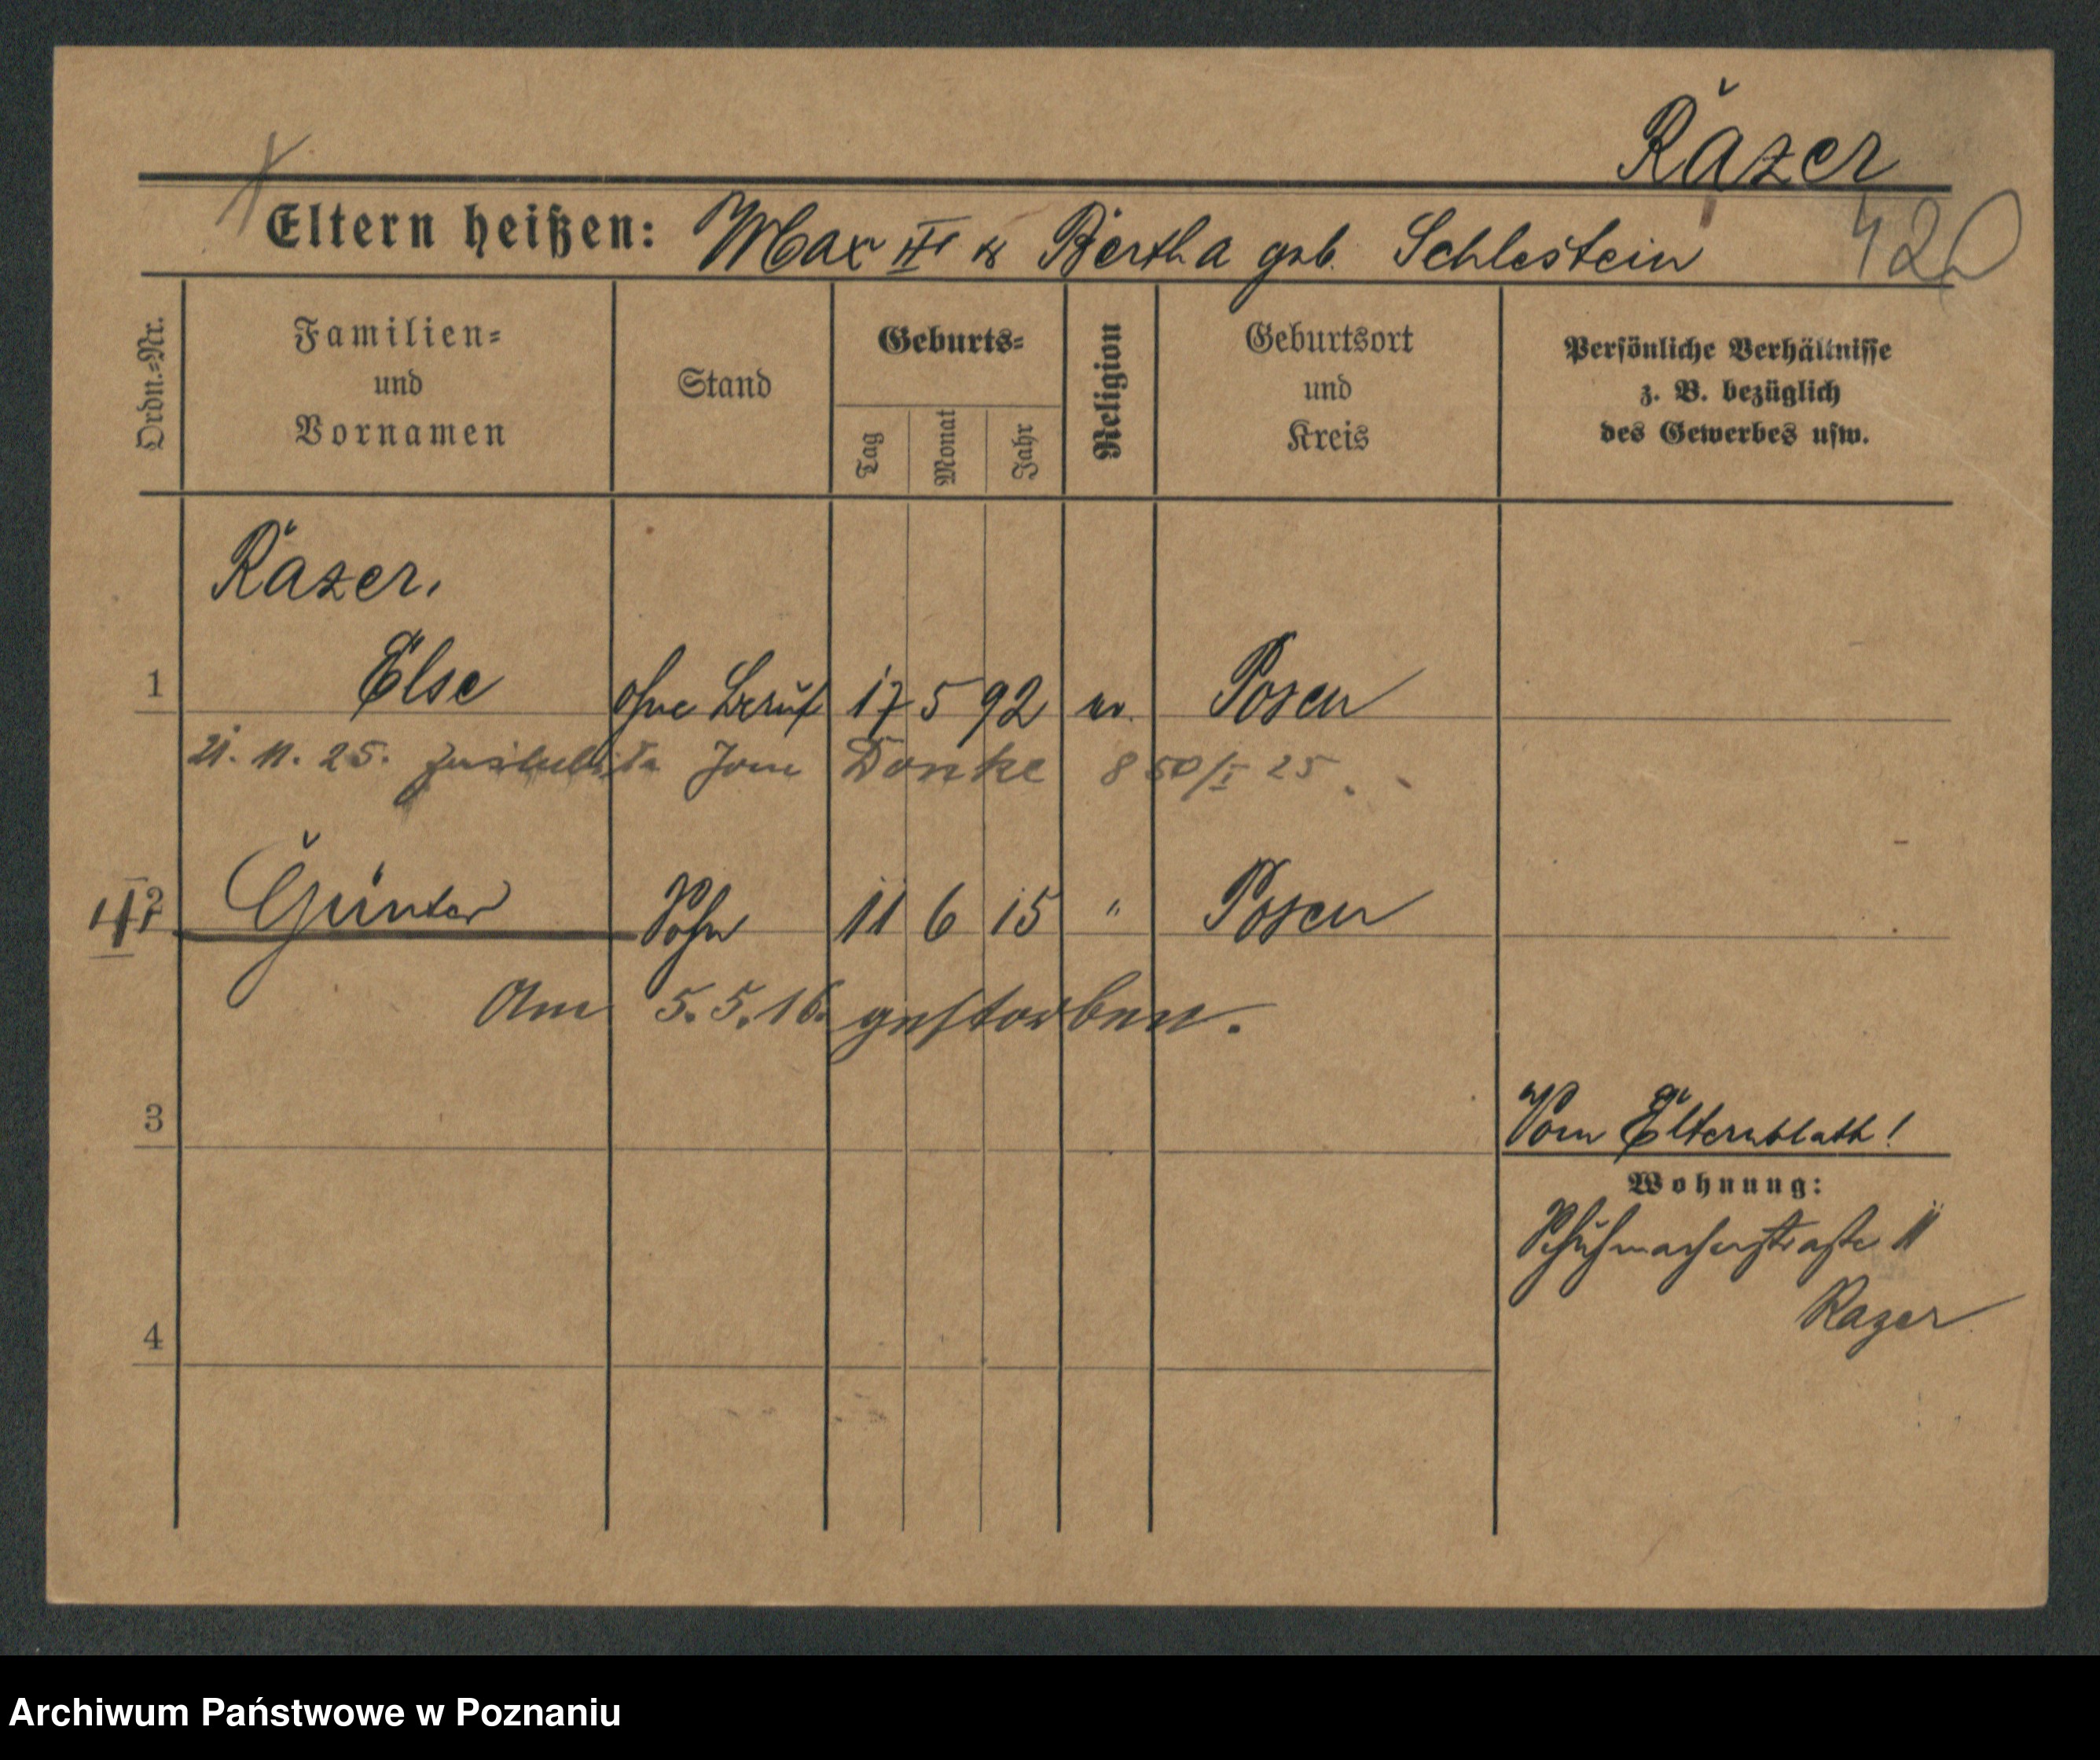 Räzer
Eltern heißen: Max III & Bertha geb. Schlestein
420
Ordn.=Nr.
Familien=
und
Vornamen
Stand
Geburts=
Tag
Monat
Jahr
Religion
Geburtsort
und
Kreis
Persönliche Verhältnisse
z. B. bezüglich
des Gewerbes usw.
Räzer,
1 Else ohne Beruf 17 5 92 ev. Posen
21. 11. 25. Donke 850/I 25.
2 Günter Sohn 11 6 15 " Posen
Am 5.5.16. gestorben.
3
Vom Elternblatt!
Wohnung:
Schuhmacherstraße 11
Razer
4
Archiwum Państwowe w Poznaniu